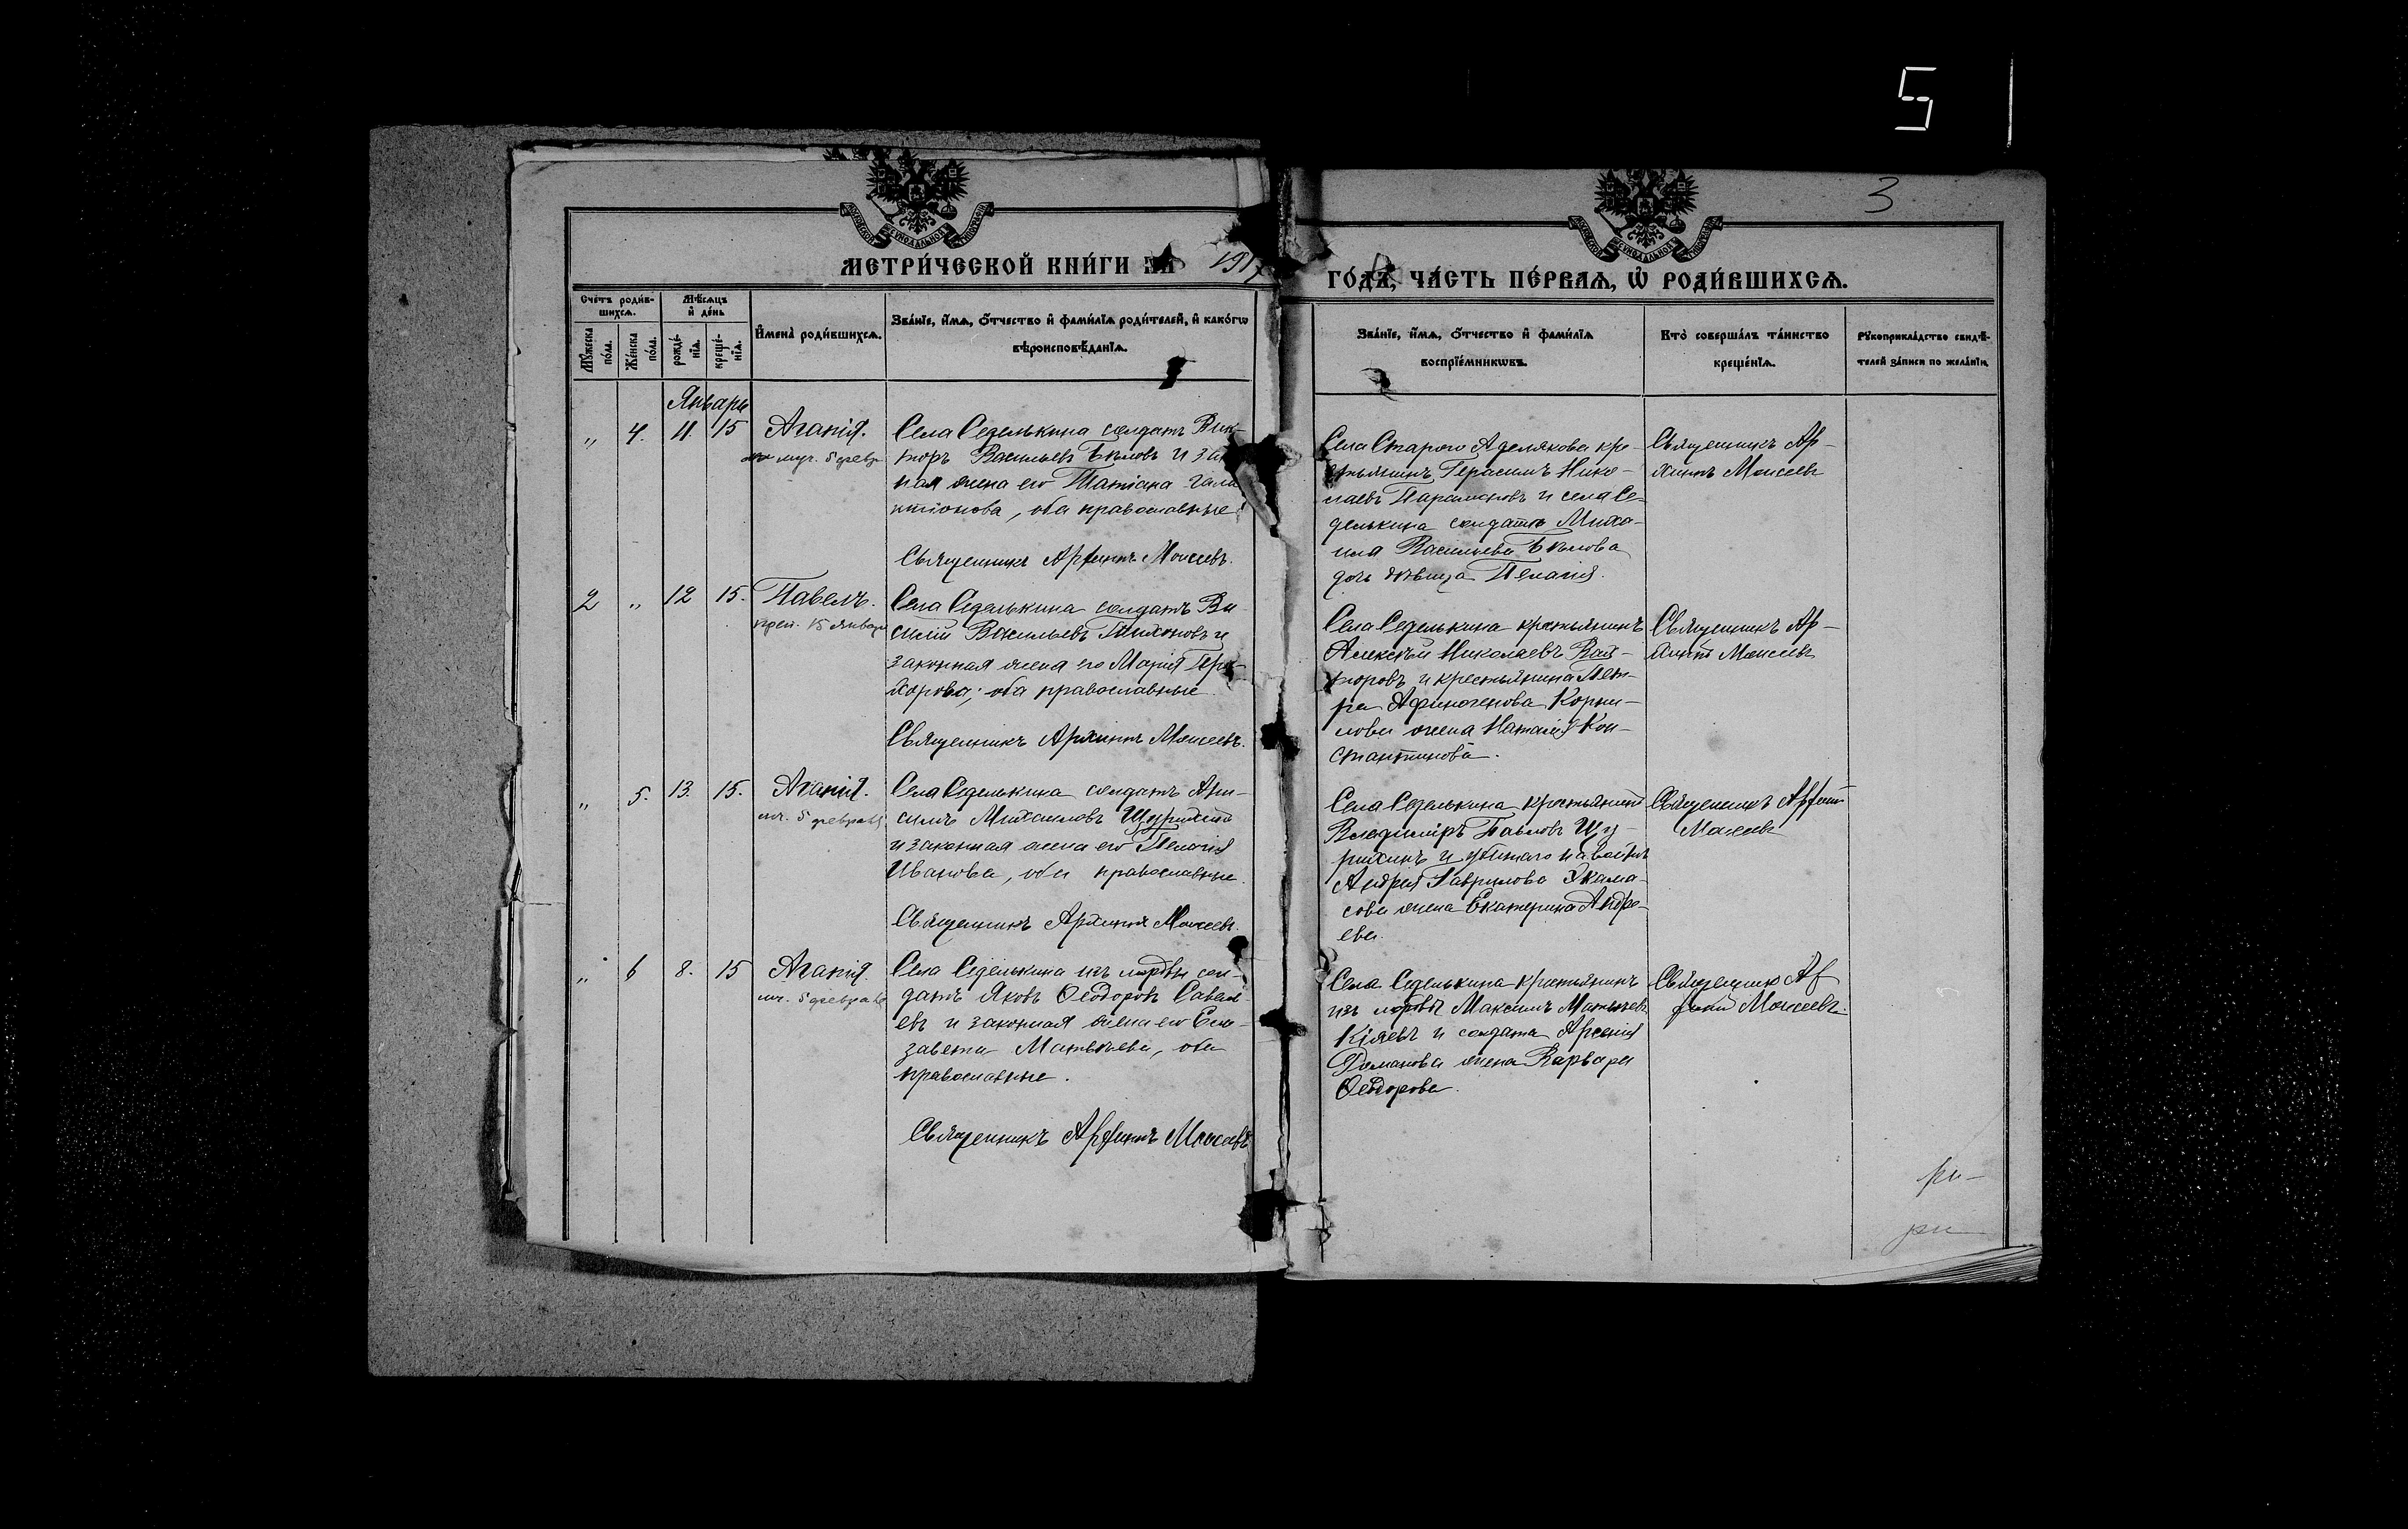 5
3
МОСКОВСКОЙ СѴНОДАЛЬНОЙ ТИПОГРАФІИ
МОСКОВСКОЙ СѴНОДАЛЬНОЙ ТИПОГРАФІИ
МЕТРИ́ЧЕСКОЙ КНИ́ГИ ЗА 1917
ГО́ДА, ЧА́СТЬ ПЕ́РВАѦ, Ѡ҆ РОДИ́ВШИХСѦ.
Сче́тъ роди́в-
шихсѧ.
Мѣ́сѧцъ
и҆ де́нь
Мꙋ́жеска
по́ла.
Же́нска
по́ла.
рожде́-
нїѧ.
креще́-
нїѧ.
И҆мена̀ роди́вшихсѧ.
Зва́нїе, и҆́мѧ, ѻ҆́тчество и҆ фами́лїѧ роди́телей, и҆ како́гѡ
вѣроисповѣ́данїѧ.
Зва́нїе, и҆́мѧ, ѻ҆́тчество и҆ фами́лїѧ
воспрїе́мникѡвъ.
Кто̀ соверша́лъ та́инство
креще́нїѧ.
Рꙋкоприкла́дство свидѣ́-
телей за́писи по жела́нїю.
Январь
„ 4. 11. 15 Агапія.
муч. 5 февр
Села Седелькина солдатъ Вик-
торъ Васильевъ Бѣловъ и за
ная жена его Татіана Гала
ктіонова, оба православные
Священникъ Архипъ Моисеевъ.
Села Стараго Аделякова кре-
стьянинъ Герасимъ Нико-
лаевъ Парамоновъ и села Се-
делькина солдата Миха-
ила Васильева Бѣлова
дочь дѣвица Пелагія.
Священникъ Ар-
хипъ Моисеевъ
2 „ 12 15. Павелъ.
преп. 15 января
Села Седелькина солдатъ Ва-
силій Васильевъ Тихоновъ и
законная жена его Марія Про-
хорова; оба православные
Священникъ Архипъ Моисеевъ.
Села Седелькина крестьянинъ
Алексѣй Николаевъ
торовъ и крестьянина Пет-
ра Афиногенова Корни-
лова жена Наталія Кон-
стантинова.
Священникъ Ар-
хипъ Моисеевъ
„ 5. 13. 15. Агапія.
мч. 5 февраля
Села Седелькина солдатъ
симъ Михаиловъ Щурихинъ
и законная жена его Пелагія
Иванова, оба православные.
Священникъ Архипъ Моисеевъ.
Села Седелькина крестьянинъ
Владиміръ Павловъ Щу-
рихинъ и убитаго на войнѣ
Андрея Гаврилова
сова жена Екатерина Андре-
ева.
Священникъ Архипъ
Моисеевъ
„ 6 8. 15 Агапія.
мч. 5 февраля
Села Седелькина изъ мордвы сол-
датъ Яковъ Ѳеодоровъ Савель-
евъ и законная жена его Ели-
завета Матвѣева, оба
православные.
Священникъ Архипъ Моисеевъ
Села Седелькина крестьянинъ
изъ мордвы Максимъ Матвѣевъ
и солдата Арсенія
Романова жена Варвара
Ѳеодорова.
Священникъ Ар
хипъ Моисеевъ.